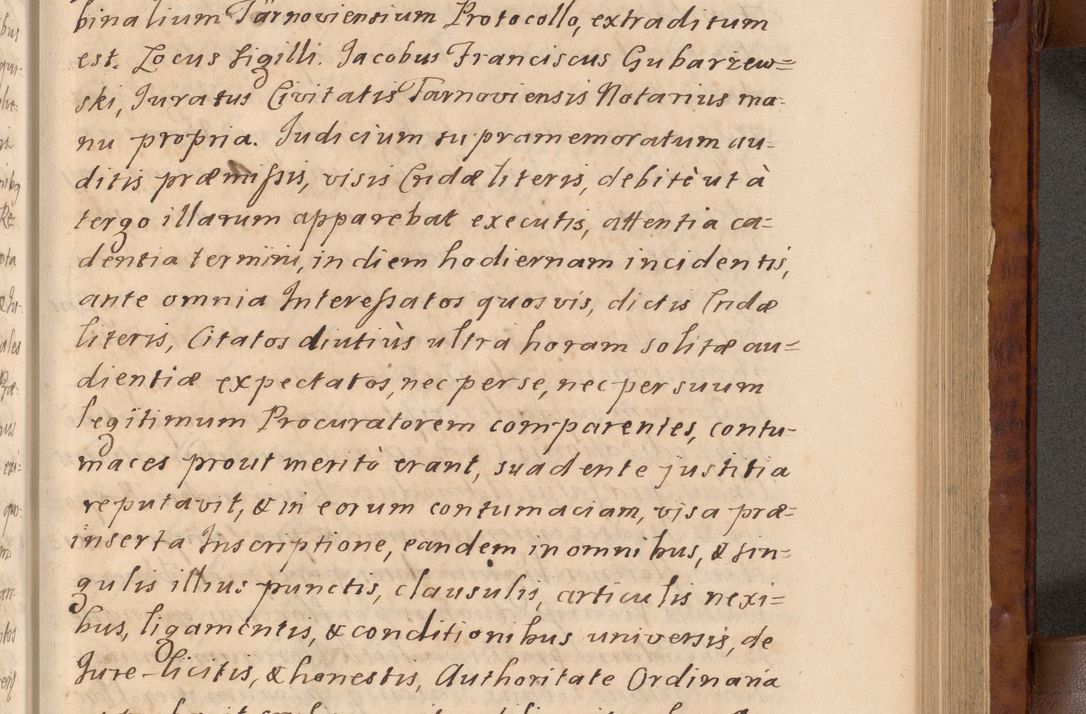 binalium Tarnoviensium Protocollo, extraditum
est. Locus Sigilli. Jacobus Franciscus Gubarzew=
ski, Juratus Civitatis Tarnoviensis Notarius ma=
nu propria. Judicium supramemoratum au=
ditis præmissis, visis Cridæ literis, debitè ut à
tergo illarum apparebat executis, attentia ca=
dentia termini, in diem hodiernam incidentis,
ante omnia Interessatos quosvis, dictis Cridæ
literis, Citatos diutiùs ultra horam solitæ au=
dientiæ expectatos, nec per se, nec per suum
legitimum Procuratorem comparentes, contu-
maces prout meritò erant, suadente justitia
reputavit, & in eorum contumaciam, visa præ=
inserta Inscriptione, eandem in omnibus, & sin=
gulis illius punctis, clausulis, articulis nexi=
bus, ligamentis, & conditionibus universis, de
Jure-licitis, & honestis, Authoritate Ordinaria